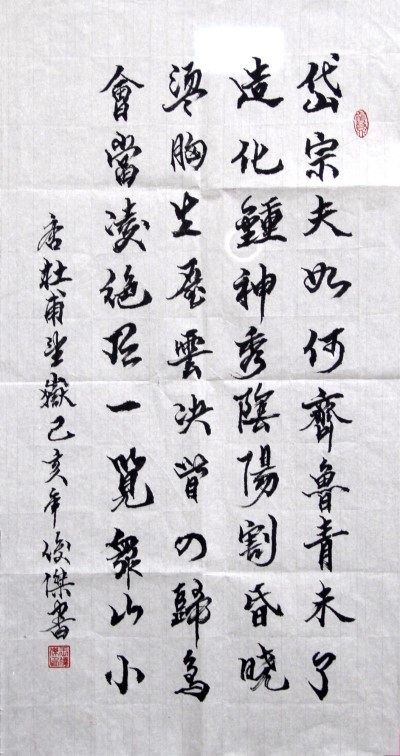 岱宗夫如何齊魯青未了
造化鍾神秀陰陽割昏曉
盪胸生層雲决眥入歸鳥
會當凌絕頂一覽眾山小
唐杜甫望嶽己亥年俊傑書